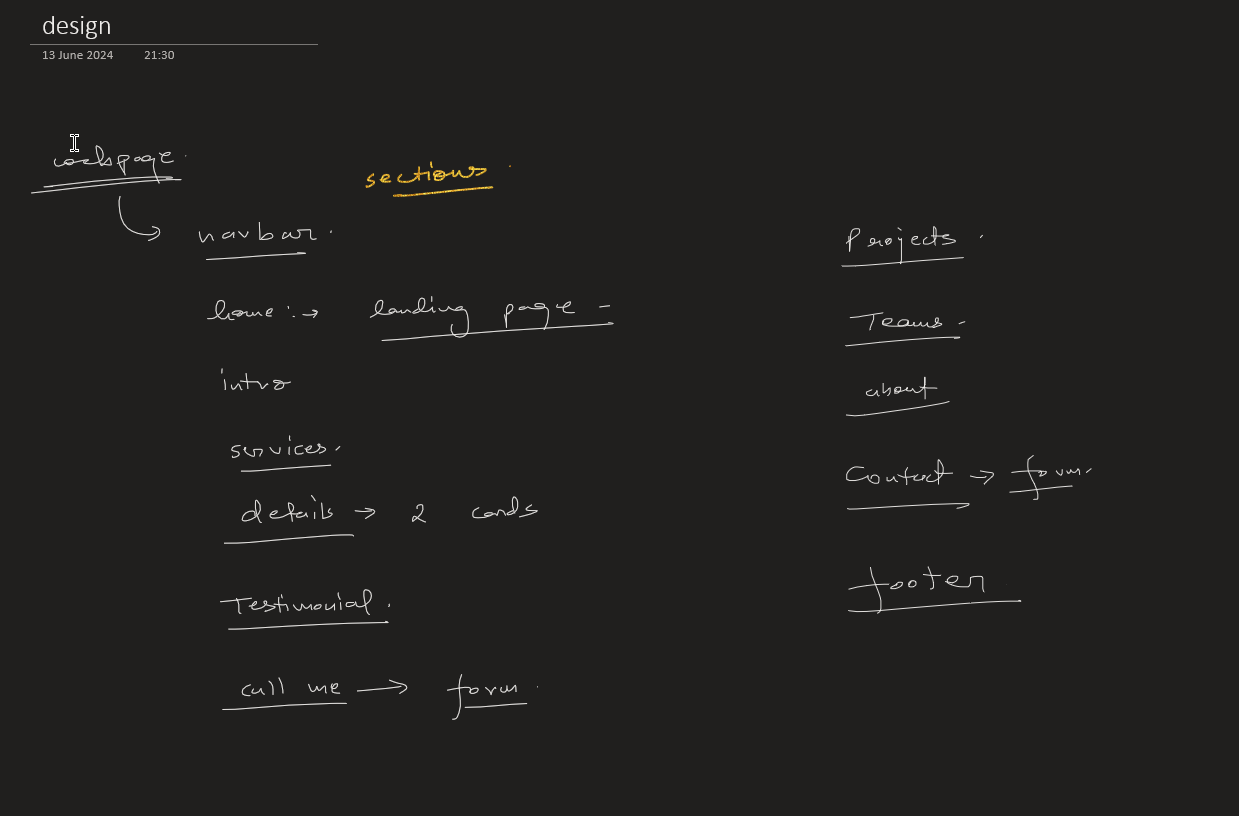 design
13 June 2024 21:30
webpage.
sections.
navbar.
home :→ landing page -
intro
services.
details → 2 cards
Testimonial.
call me → form.
Projects.
Teams.
about
Contact → form.
footer